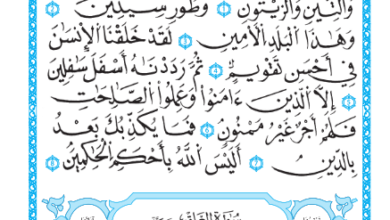 وَالتِّينِ وَالزَّيْتُونِ ۝ وَطُورِ سِينِينَ ۝
وَهَٰذَا الْبَلَدِ الْأَمِينِ ۝ لَقَدْ خَلَقْنَا الْإِنسَٰنَ
فِي أَحْسَنِ تَقْوِيمٍ ۝ ثُمَّ رَدَدْنَٰهُ أَسْفَلَ سَٰفِلِينَ
۝ إِلَّا الَّذِينَ ءَامَنُوا وَعَمِلُوا الصَّالِحَاتِ
فَلَهُمْ أَجْرٌ غَيْرُ مَمْنُونٍ ۝ فَمَا يُكَذِّبُكَ بَعْدُ
بِالدِّينِ ۝ أَلَيْسَ اللَّهُ بِأَحْكَمِ الْحَاكِمِينَ ۝